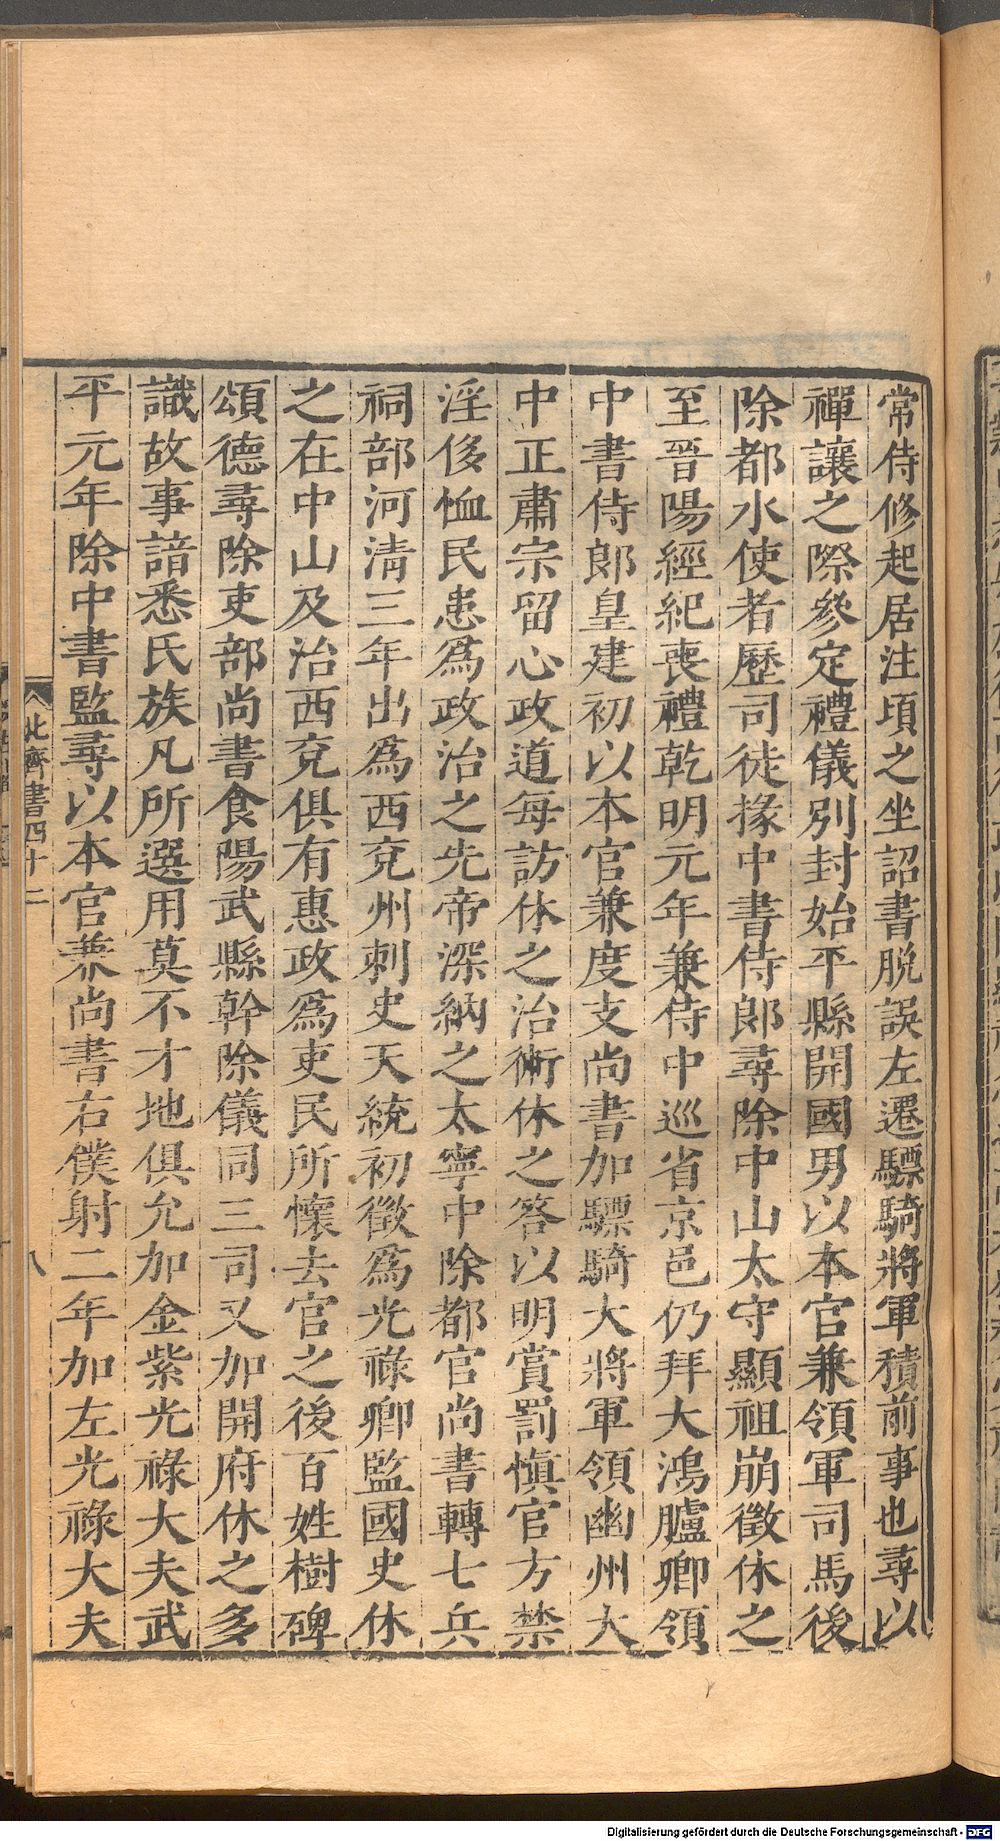 常侍修起居注頃之坐詔書脱誤左遷驃騎將軍積前事也尋以
禪讓之際參定禮儀別封始平縣開國男以本官兼領軍司馬後
除都水使者歷司徒掾中書侍郎尋除中山太守顯祖崩徵休之
至晉陽經紀喪禮乾明元年兼侍中巡省京邑仍拜大鴻臚卿領
中書侍郎皇建初以本官兼度支尚書加驃騎大將軍領幽州大
中正肅宗留心政道每訪休之治術休之答以明賞罰慎官方禁
淫侈恤民患爲政治之先帝深納之太寧中除都官尚書轉七兵
祠部河清三年出爲西兗州刺史天統初徵爲光祿卿監國史休
之在中山及治西兗俱有惠政爲吏民所懷去官之後百姓樹碑
頌德尋除吏部尚書食陽武縣幹除儀同三司又加開府休之多
識故事諳悉氏族凡所選用莫不才地俱允加金紫光祿大夫武
平元年除中書監尋以本官兼尚書右僕射二年加左光祿大夫
北齊書四十二
八
Digitalisierung gefördert durch die Deutsche Forschungsgemeinschaft - DFG